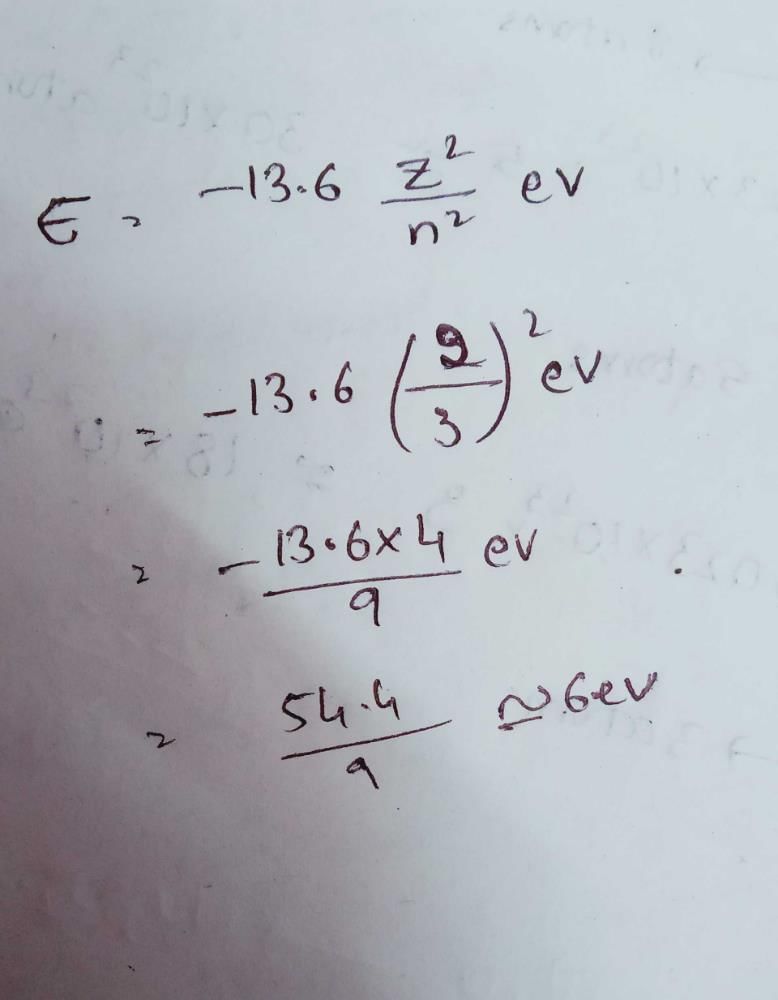 E = -13.6 z²/n² ev
= -13.6 (2/3)² ev
= -13.6×4/9 ev
= 54.4/9 ≃ 6ev